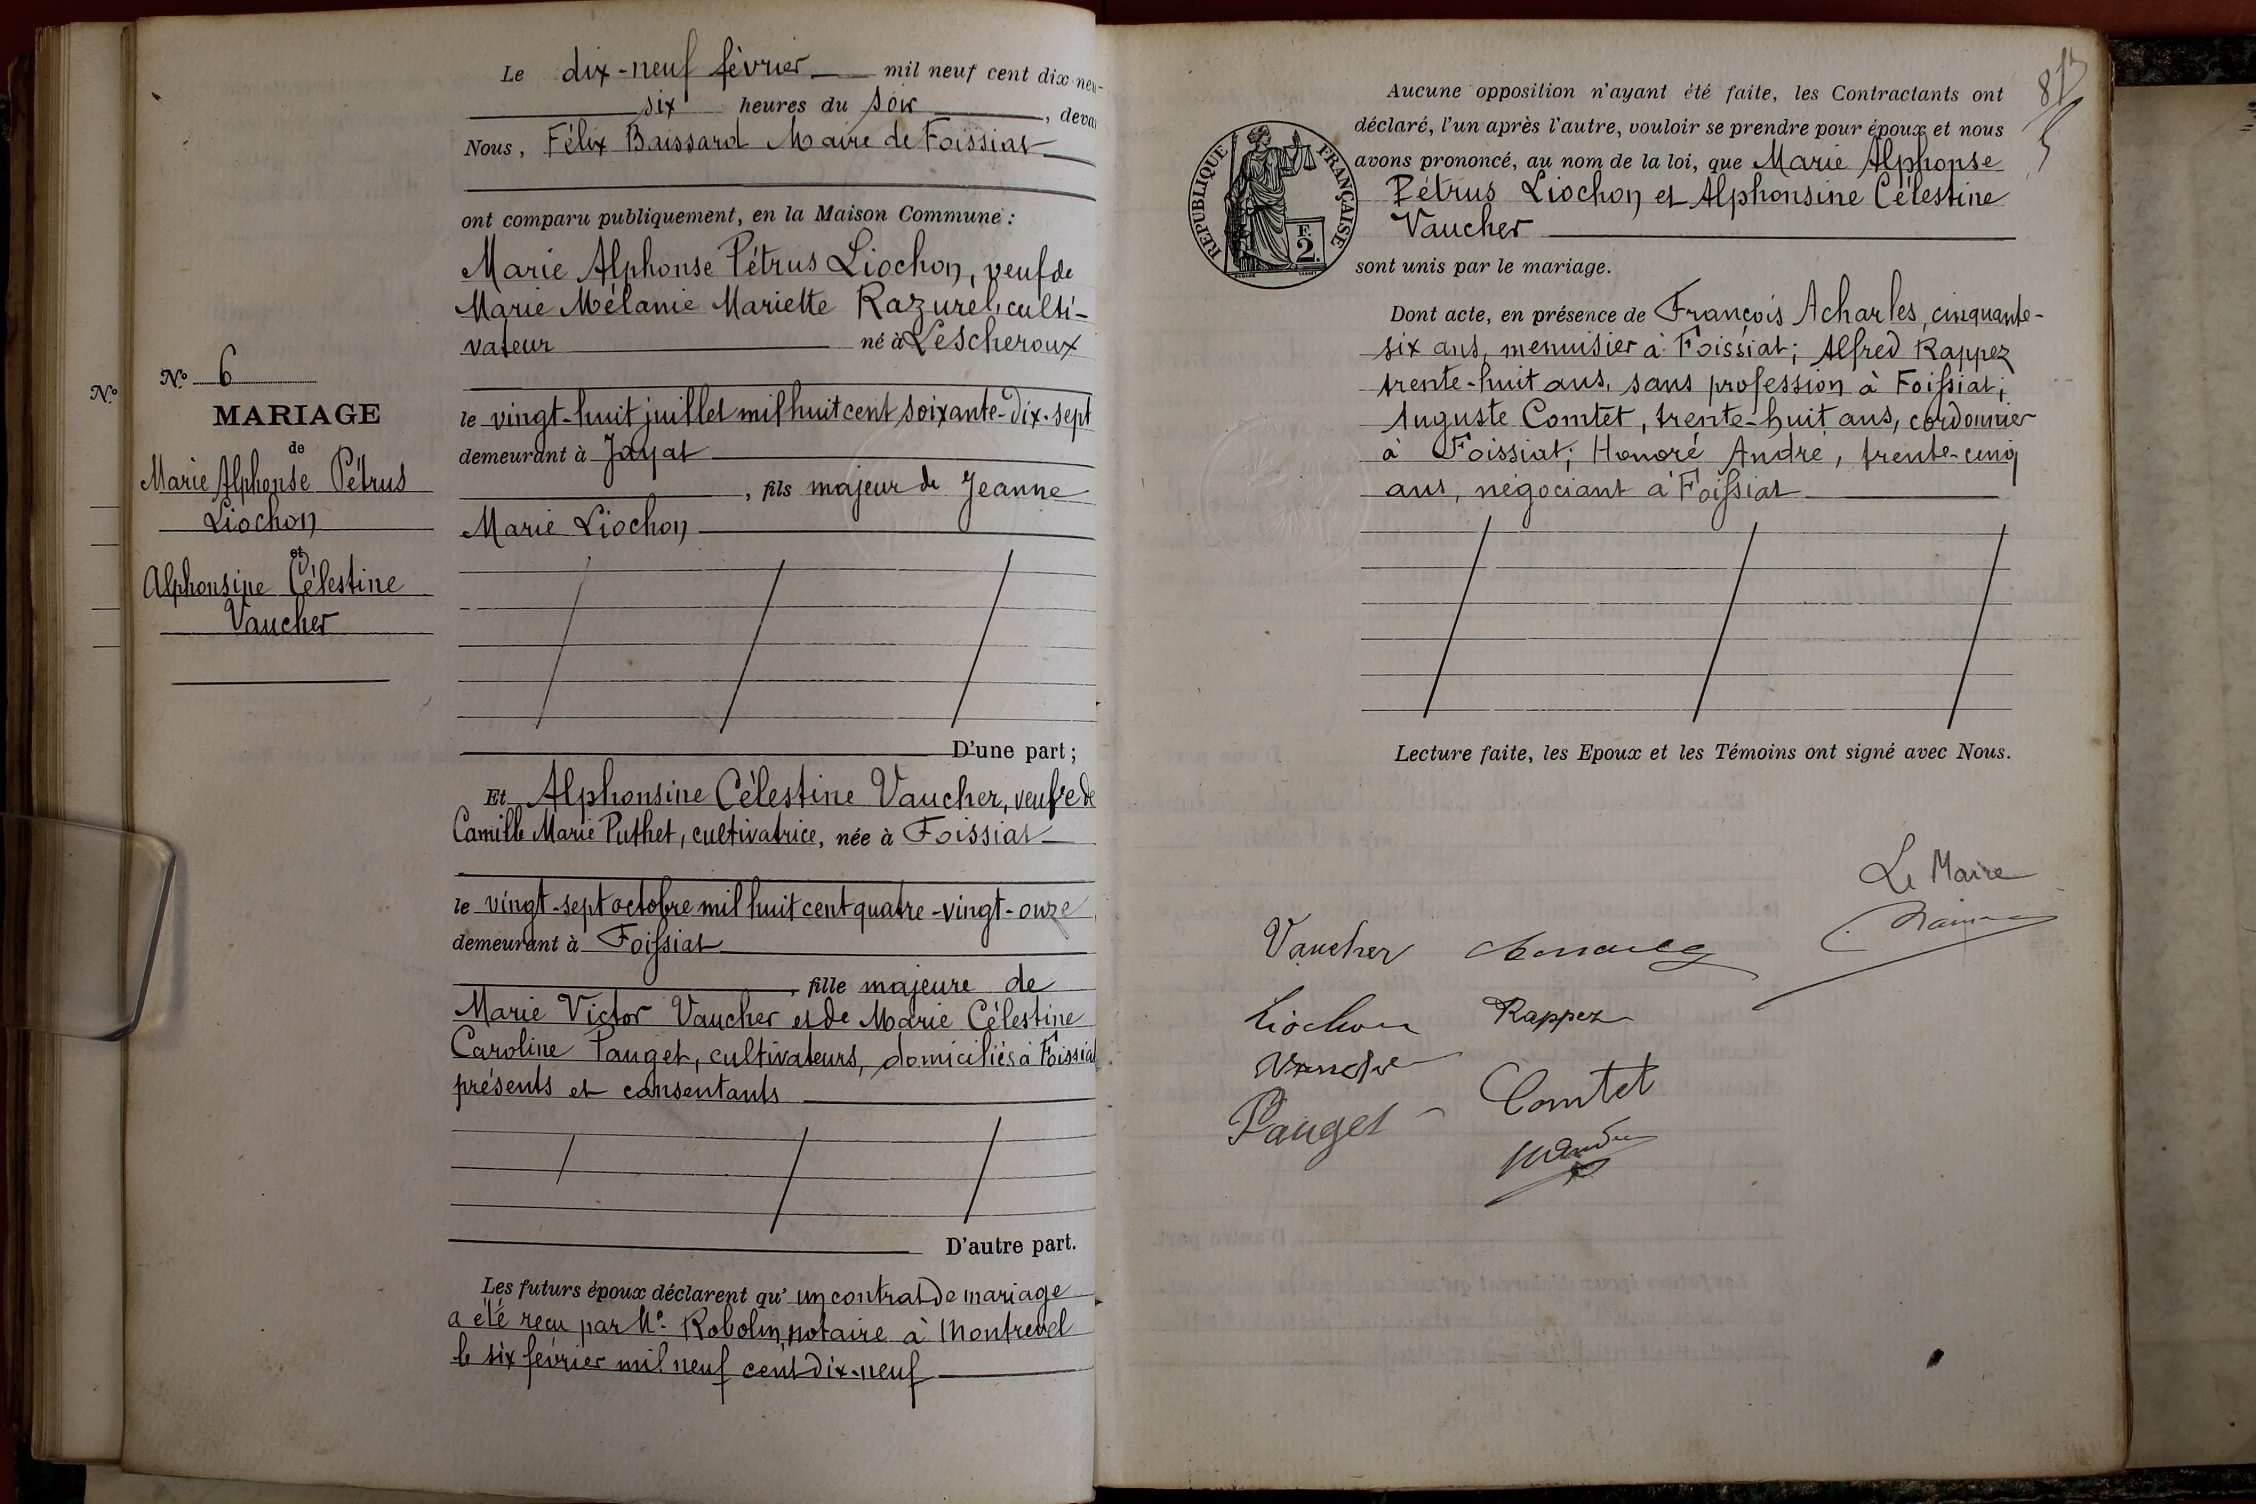 N.º
N.º 6
MARIAGE
de
Marie Alphonse Pétrus
Liochon
et
Alphonsine Célestine
Vaucher
Le dix-neuf février mil neuf cent dix-neu
six heures du soir, deva
Nous, Félix Baissard Maire de Foissiat
ont comparu publiquement, en la Maison Commune :
Marie Alphonse Pétrus Liochon, veuf de
Marie Mélanie Mariette Razurel, culti-
vateur né à Lescheroux
le vingt-huit juillet mil huit cent soixante-dix-sept
demeurant à Jayat
, fils majeur de Jeanne
Marie Liochon
D'une part ;
Et Alphonsine Célestine Vaucher, veuve de
Camille Marie Puthet, cultivatrice, née à Foissiat
le vingt-sept octobre mil huit cent quatre-vingt-onze
demeurant à Foissiat
, fille majeure de
Marie Victor Vaucher et de Marie Célestine
Caroline Pauget, cultivateurs, domiciliés à Foissiat
présents et consentants
D'autre part.
Les futurs époux déclarent qu' un contrat de mariage
a été reçu par Me Robolin, notaire à Montrevel
le six février mil neuf cent dix-neuf
RÉPUBLIQUE FRANÇAISE
F.
2.
Aucune opposition n'ayant été faite, les Contractants ont
déclaré, l'un après l'autre, vouloir se prendre pour époux et nous
avons prononcé, au nom de la loi, que Marie Alphonse
Pétrus Liochon et Alphonsine Célestine
Vaucher
sont unis par le mariage.
Dont acte, en présence de François Acharles, cinquante-
six ans, menuisier à Foissiat; Alfred Rappez
trente-huit ans, sans profession à Foissiat;
Auguste Comtet, trente-huit ans, cordonnier
à Foissiat; Honoré André, trente-cinq
ans, négociant à Foissiat
Lecture faite, les Epoux et les Témoins ont signé avec Nous.
Le Maire
Vaucher
Liochon Rappez
Pauget Comtet